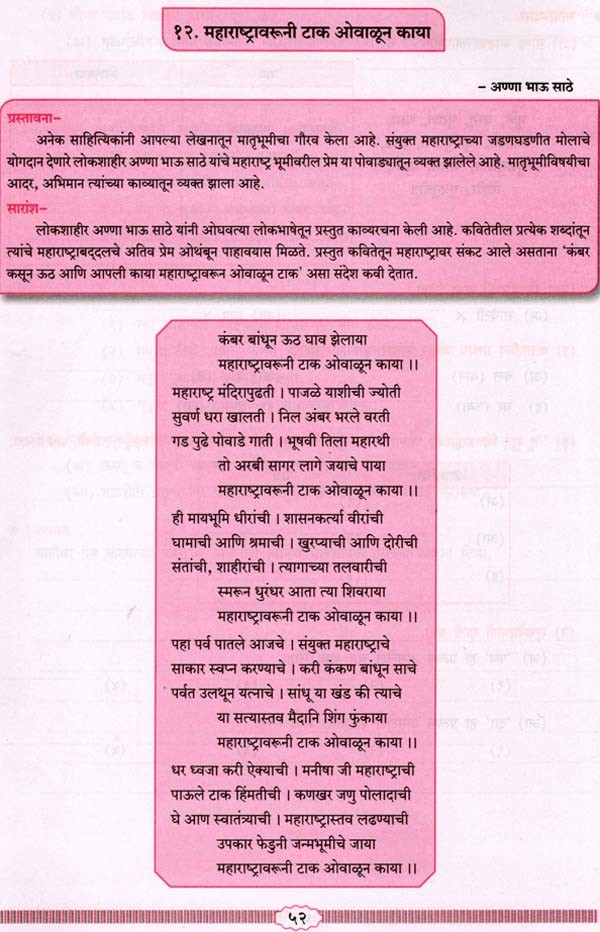 १२. महाराष्ट्रावरूनी टाक ओवाळून काया
– अण्णा भाऊ साठे
प्रस्तावना–
अनेक साहित्यिकांनी आपल्या लेखनातून मातृभूमीचा गौरव केला आहे. संयुक्त महाराष्ट्राच्या जडणघडणीत मोलाचे
योगदान देणारे लोकशाहीर अण्णा भाऊ साठे यांचे महाराष्ट्र भूमीवरील प्रेम या पोवाड्यातून व्यक्त झालेले आहे. मातृभूमीविषयीचा
आदर, अभिमान त्यांच्या काव्यातून व्यक्त झाला आहे.
सारांश–
लोकशाहीर अण्णा भाऊ साठे यांनी ओघवत्या लोकभाषेतून प्रस्तुत काव्यरचना केली आहे. कवितेतील प्रत्येक शब्दांतून
त्यांचे महाराष्ट्राबद्दलचे अतिव प्रेम ओथंबून पाहावयास मिळते. प्रस्तुत कवितेतून महाराष्ट्रावर संकट आले असताना ‘कंबर
कसून ऊठ आणि आपली काया महाराष्ट्रावरून ओवाळून टाक’ असा संदेश कवी देतात.
कंबर बांधून ऊठ घाव झेलाया
महाराष्ट्रावरूनी टाक ओवाळून काया ।।
महाराष्ट्र मंदिरापुढती । पाजळे याशीची ज्योती
सुवर्ण धरा खालती । निल अंबर भरले वरती
गड पुढे पोवाडे गाती । भूषवी तिला महारथी
तो अरबी सागर लागे जयाचे पाया
महाराष्ट्रावरूनी टाक ओवाळून काया ।।
ही मायभूमि धीरांची । शासनकर्त्या वीरांची
घामाची आणि श्रमाची । खुरप्याची आणि दोरीची
संतांची, शाहीरांची । त्यागाच्या तलवारीची
स्मरून धुरंधर आता त्या शिवराया
महाराष्ट्रावरूनी टाक ओवाळून काया ।।
पहा पर्व पातले आजचे । संयुक्त महाराष्ट्राचे
साकार स्वप्न करण्याचे । करी कंकण बांधून साचे
पर्वत उलथून यत्नाचे । सांधू या खंड की त्याचे
या सत्यास्तव मैदानि शिंग फुंकाया
महाराष्ट्रावरूनी टाक ओवाळून काया ।।
धर ध्वजा करी ऐक्याची । मनीषा जी महाराष्ट्राची
पाऊले टाक हिंमतीची । कणखर जणु पोलादाची
घे आण स्वातंत्र्याची । महाराष्ट्रास्तव लढण्याची
उपकार फेडुनी जन्मभूमीचे जाया
महाराष्ट्रावरूनी टाक ओवाळून काया ।।
५२